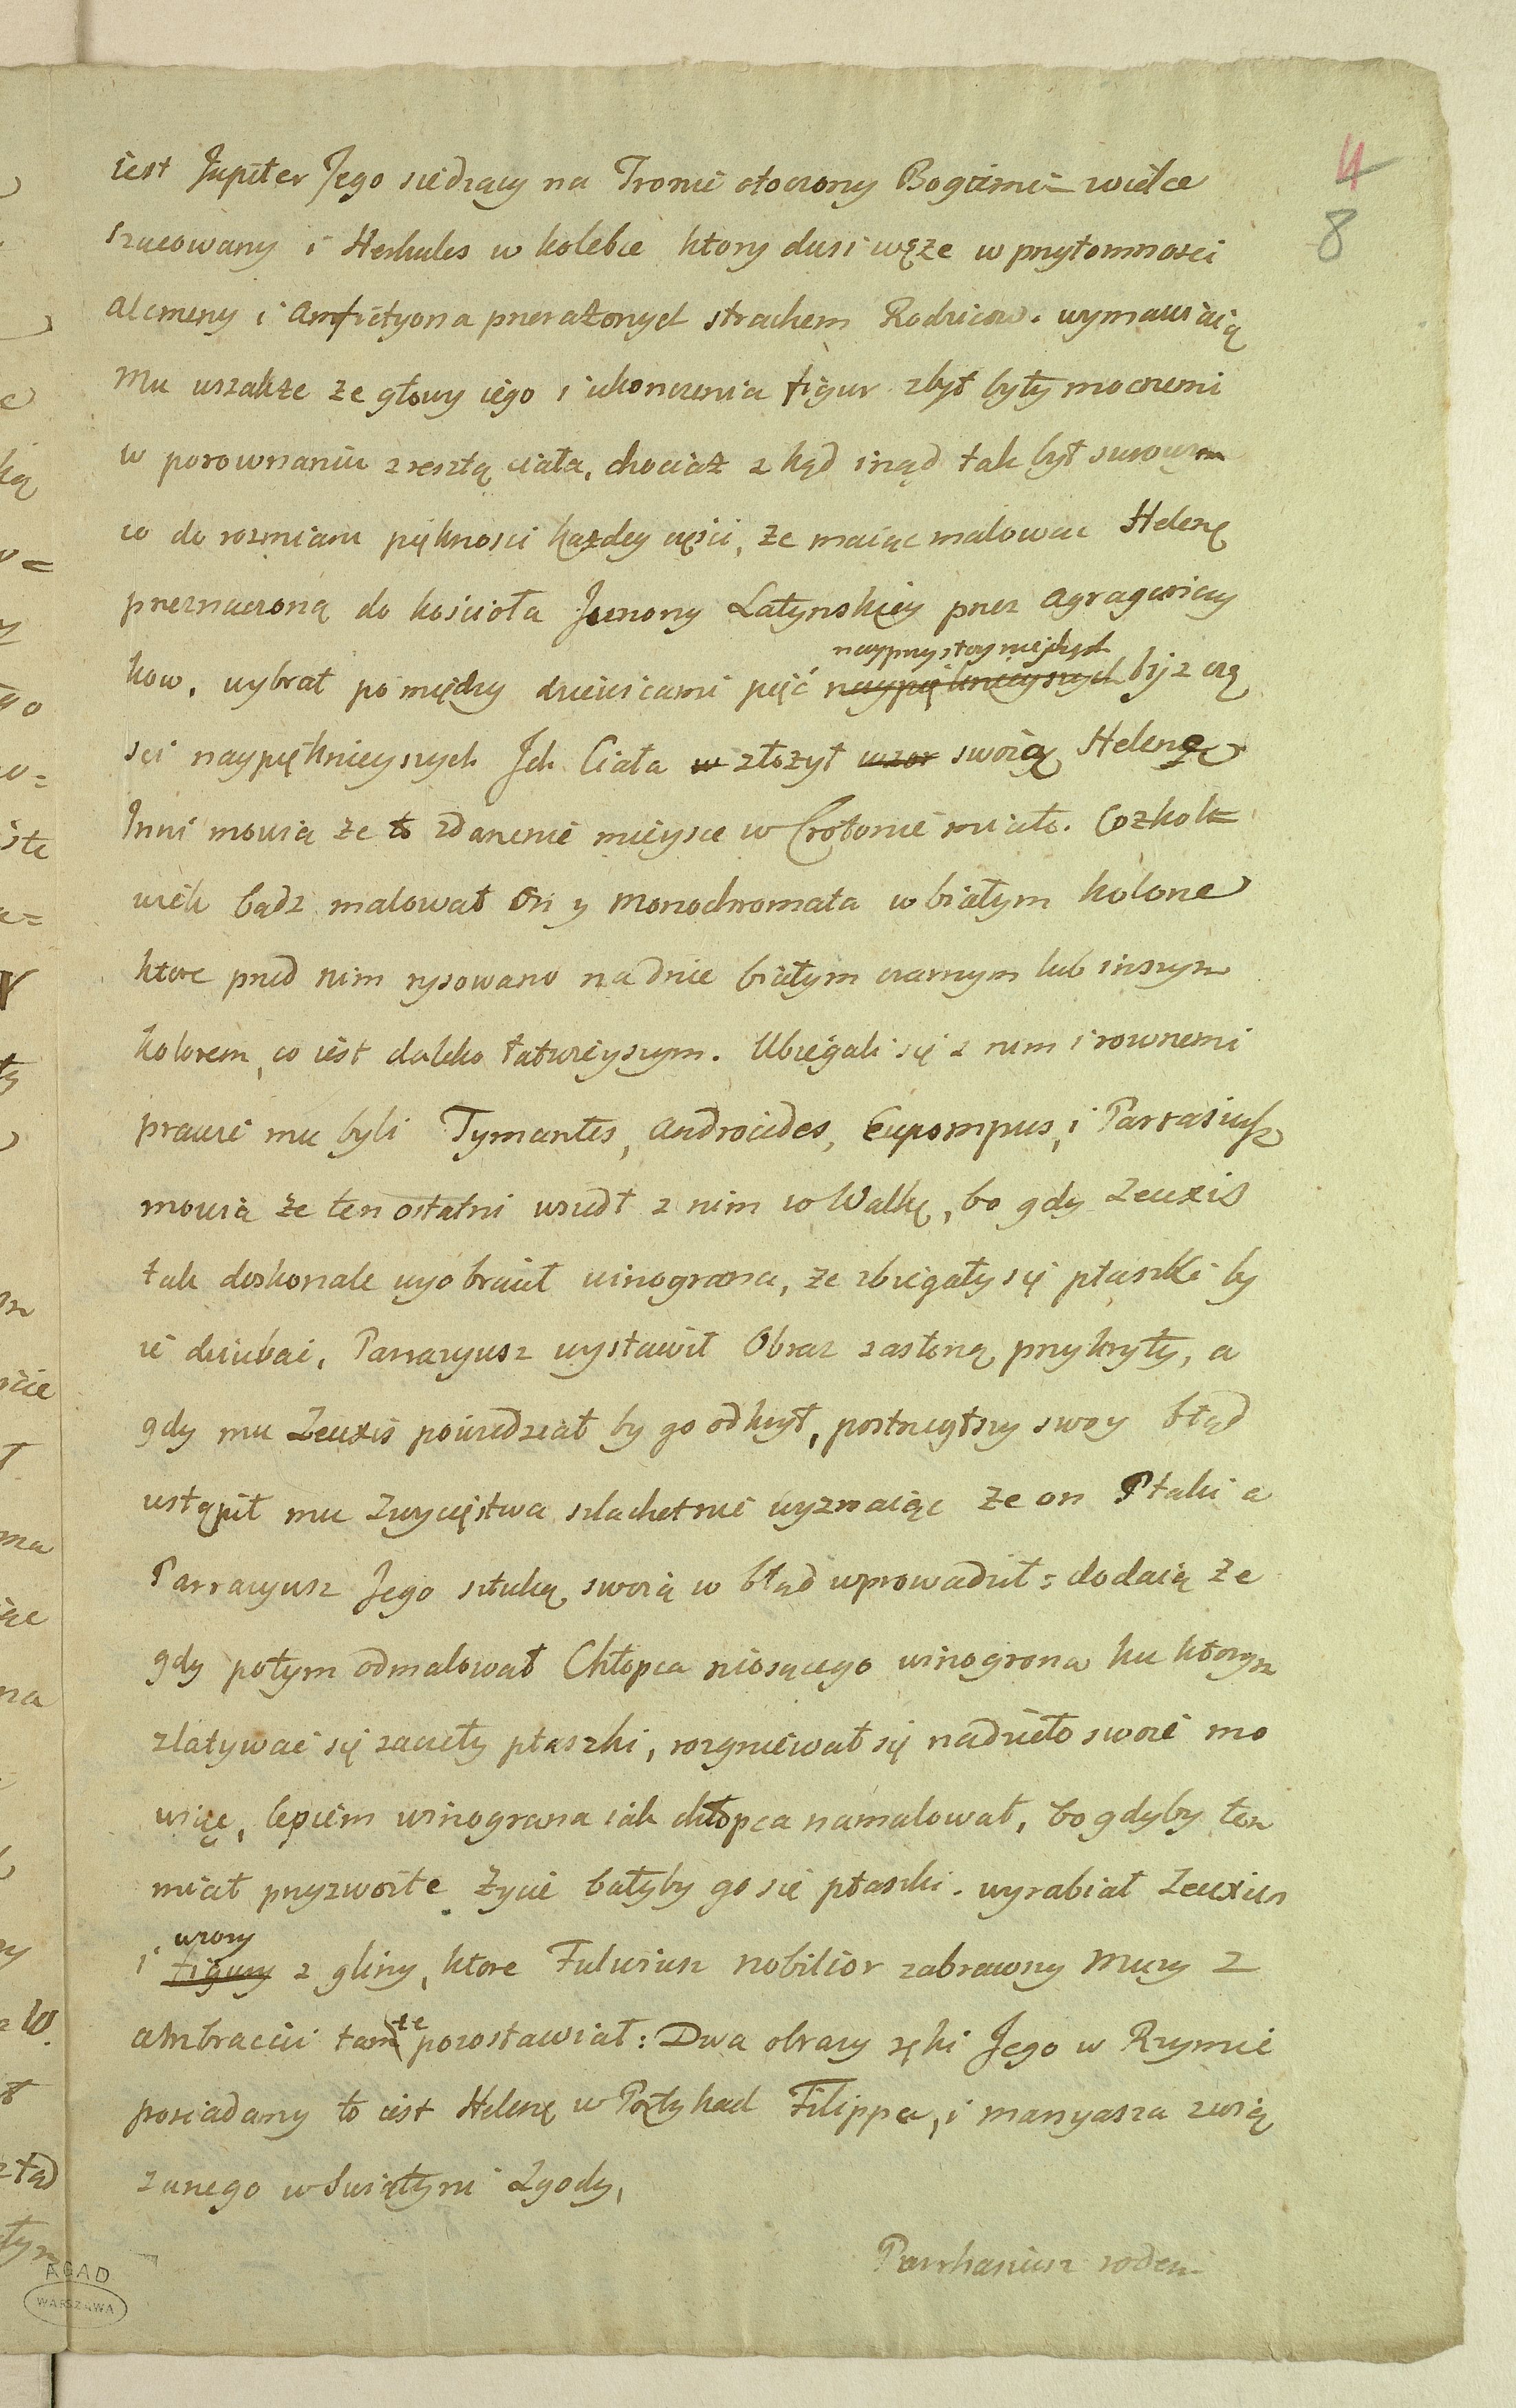 4
8
iest Jupiter Jego siedzący na Tronie otoczony Bogami wielce
szacowany i Herkules w kolebce ktory dusi węże w przytomnosci
Alcmeny i Amfictyona przerażonych strachem Rodzicow. wymawiaią
Mu wszakże że głowy iego i ukonczenia figur zbyt były mocnemi
w porownaniu z resztą ciała, chociaż z kąd inąd tak był surowym
co do rozmiaru pięknosci każdey częsci, że maiąc malowac Helenę
przeznaczoną do kościoła Junony Latynskiey przez Agragentczy
kow, wybrał po między dziewicami pięć naypięknieyszych nayprzystoynieyszych by z czę
sci naypięknieyszych Jch Ciała w złożył wzor swoią Helenę
Inni mowia że to zdarzenie mieysce w Crotonie miało. Cozkol=
wiek bądz malował On y Monochromata w białym kolorze
ktore przed nim rysowano na dnie białym czarnym lub inszym
kolorem, co iest daleko łatwieyszym. Ubiegali się z nim i rownemi
prawie mu byli Tymantes, Androcides, Eupompus, i Parrasiusz
mowia że ten ostatni wszedł z nim w Walkę, bo gdy Zeuxis
tak doskonale wyobraził winograna, że zbiegały się ptaszki by
ie dziubac, Parrazyusz wystawił Obraz zasłoną przykryty, a
gdy mu Zeuxis powiedział by go odkrył, postrzegłszy swoy błąd
ustąpił mu Zwycięstwa szlachetnie wyznaiąc że on Ptaki a
Parrazyusz Jego sztuką swoią w błąd wprowadził: dodaią że
gdy potym odmalował Chłopca niosącego winograna ku ktorym
zlatywac się zaczeły ptaszki, rozgniewał się na dzieło swoie mo
wiąc, lepiem winograna iak chłopca namalował, bo gdyby ten
miał przyzwoite życie bałyby go się ptaszki. wyrabiał Zeuxius
i figury wzory z gliny, ktore Fulwiusz Nobilior zabrawszy Muzy z
Ambracii tamże pozostawiał: Dwa obrazy ręki Jego w Rzymie
posiadamy to iest Helenę w Portykach Filippa, i Manyasza zwią
zanego w Swiątyni Zgody,
Parrhasiusz rodem
AGAD
WARSZAWA